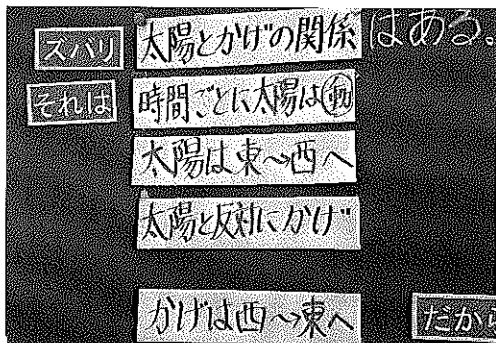 ズバリ 太陽とかげの関係はある。
それは 時間ごとに太陽は動
太陽は東〜西へ
太陽と反対にかげ
かげは西〜東へ だから